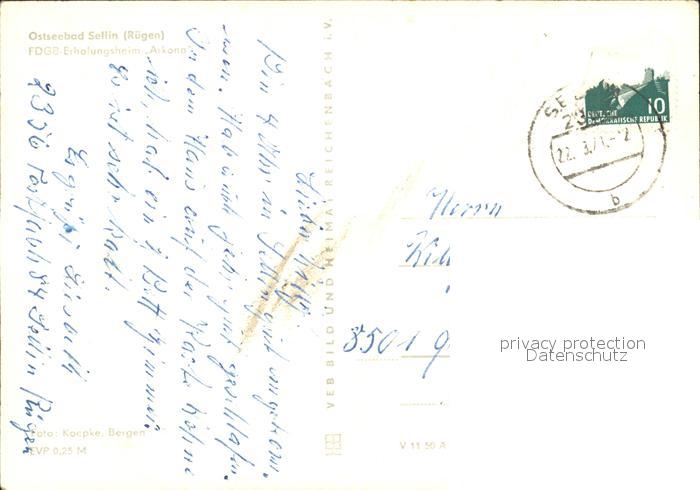 Ostseebad Sellin (Rügen)
FDGB-Erholungsheim „Arkona"
Bin 2 Uhr in Sellin gut angekom-
men. Hab auch sehr gut geschlafen.
In dem Haus auf der Karte wohne
ich, hab ein 2 Bett Zimmer.
Es ist sehr kalt.
Es grüßt
2356 Postfach 54 Sellin Rügen
Foto: Koepke, Bergen
EVP 0,25 M
VEB BILD UND HEIMAT REICHENBACH i. V.
V 11 50 A
DEUTSCHE
DEMOKRATISCHE REPUBLIK
10
22. 3. 71 - 12
b
Herrn
8501
privacy protection
Datenschutz